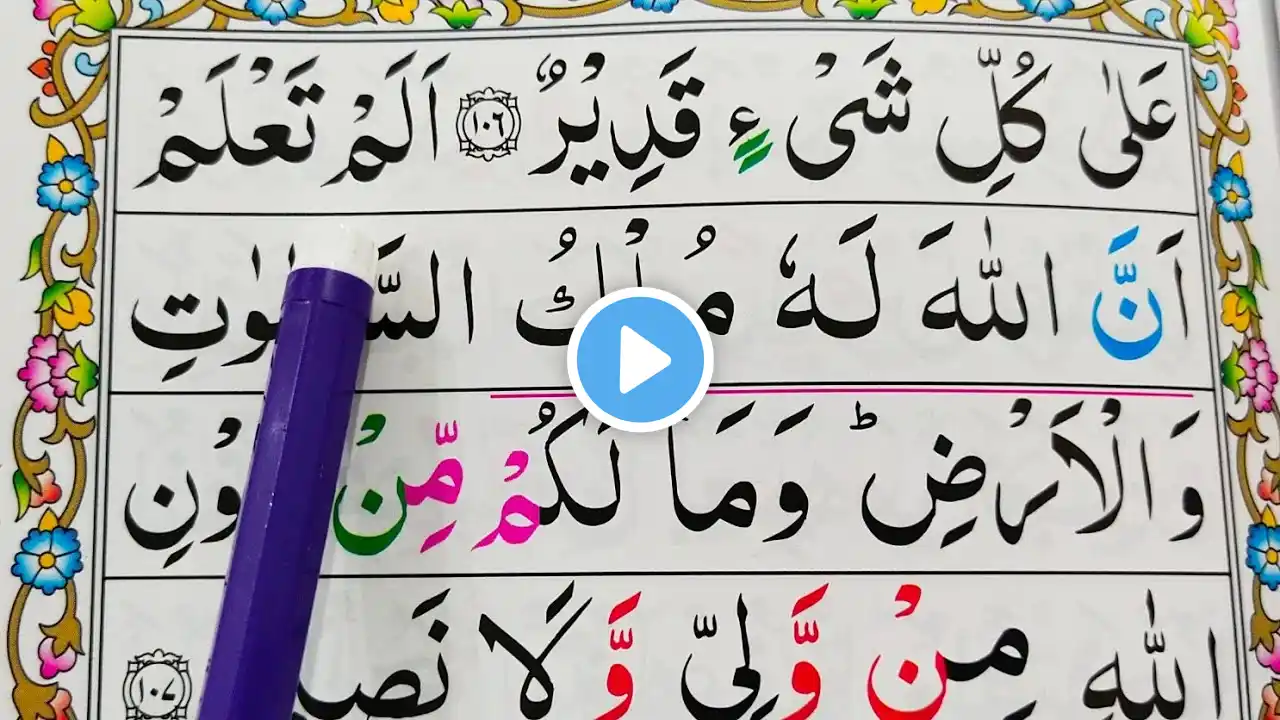 عَلٰى كُلِّ شَىْءٍ قَدِيْرٌ ۝١٠٦ اَلَمْ تَعْلَمْ
اَنَّ اللّٰهَ لَهٗ مُلْكُ
وَالْاَرْضِؕ وَمَا لَكُمْ مِّنْ
اللّٰهِ مِنْ وَّلِىٍّ وَّلَا ۝١٠٧